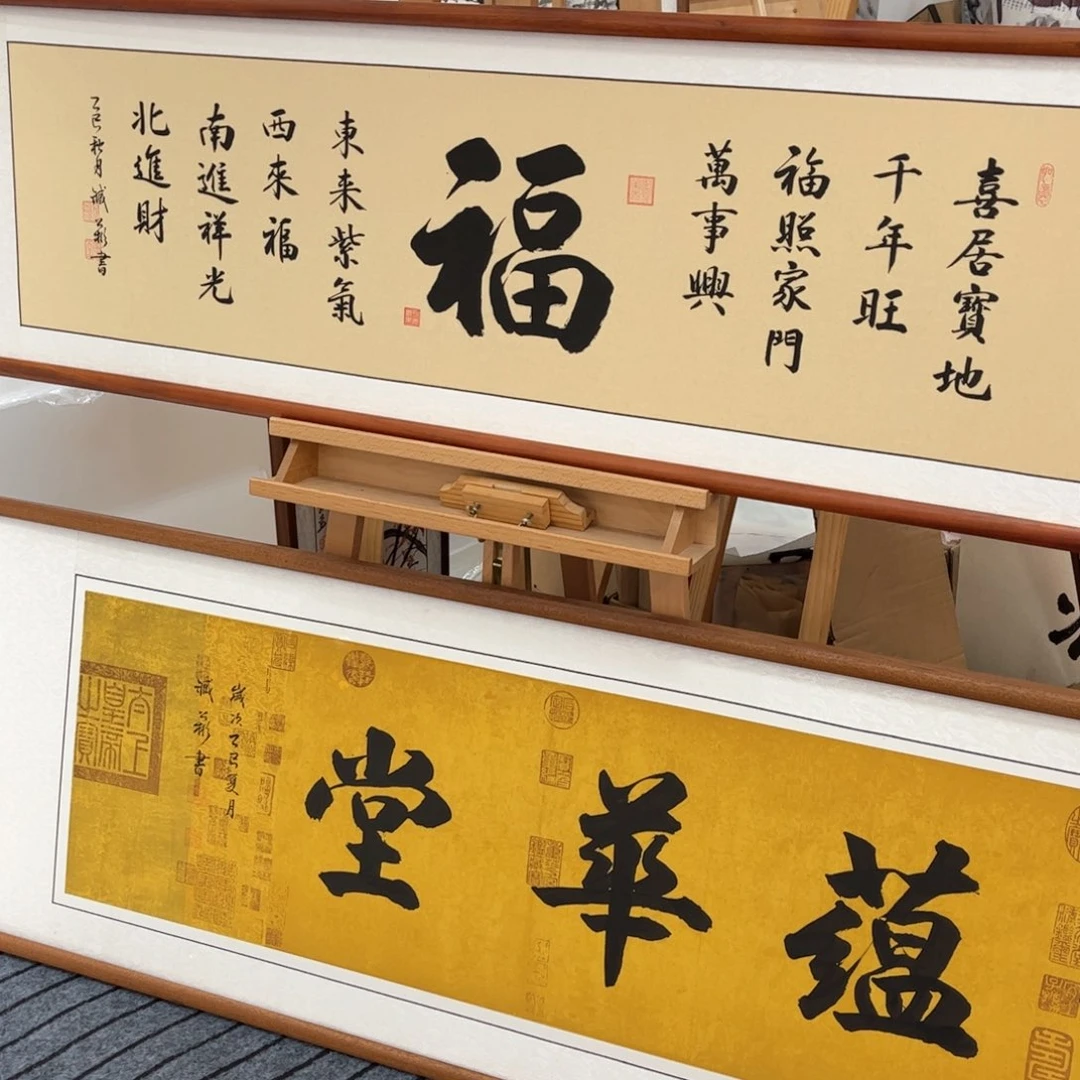 喜居寶地
千年旺
福照家門
萬事興
福
東來紫氣
西來福
南進祥光
北進財
乙巳秋月
書
蘊華堂
歲次乙巳夏月
書